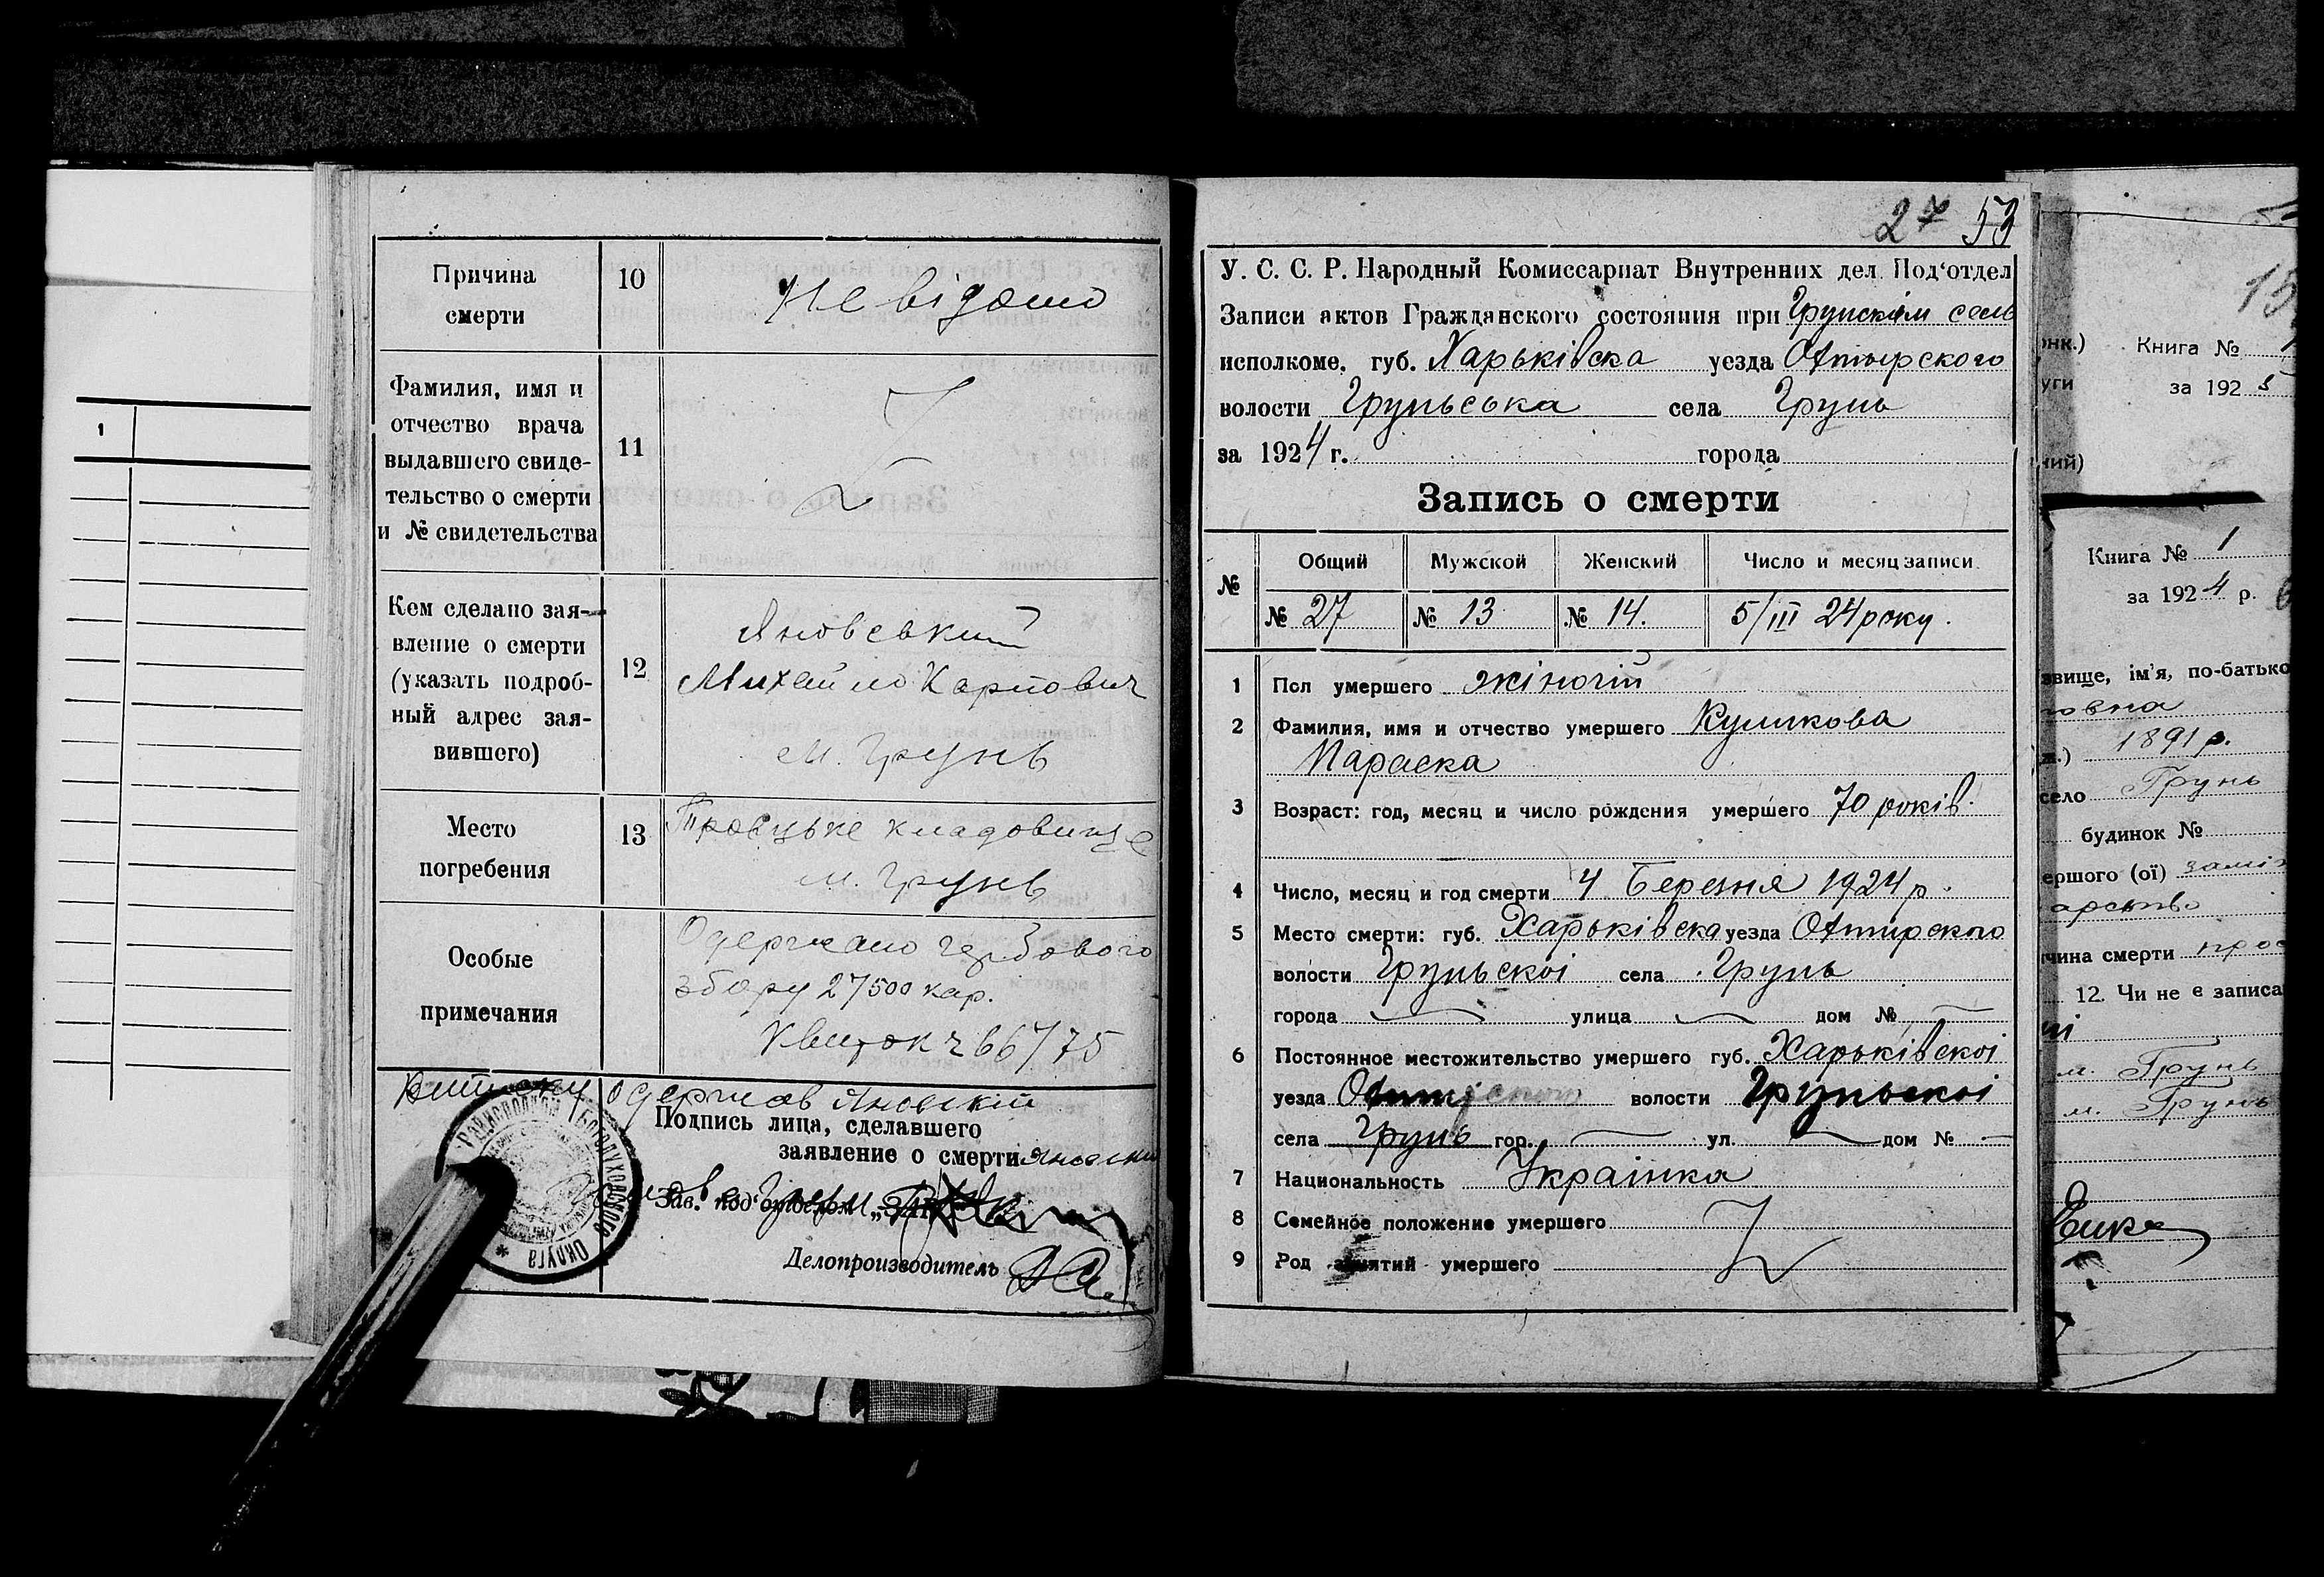 1
Причина
смерти
10
Не відомо
Фамилия, имя и
отчество врача
выдавшего свиде-
тельство о смерти
и № свидетельства
11
Z
Кем сделано зая-
вление о смерти
(указать подроб-
ный адрес зая-
вившего)
12
Яновський
Михайло Карпович
м. Грунь
Место
погребения
13
Троецьке кладовище
м. Грунь
Особые
примечания
Одержано гербового
збору 27500 кар.
Квиток ч 66/75
Виписку одержав Яновский
Подпись лица, сделавшего
заявление о смерти
Зав. под'отделом
Делопроизводитель
РАЙИСПОЛКОМ БОГОДУХОВСКОГО ОКРУГА *
27 53
У. С. С. Р. Народный Комиссариат Внутренних дел. Под'отдел
Записи актов Гражданского состояния при Грунскім сель
исполкоме, губ. Харьківска уезда Охтырского
волости Груньська села Грунь
за 1924 г. города
Запись о смерти
№ Общий Мужской Женский Число и месяц записи
№ 27 № 13 № 14. 5/III 24 року.
1 Пол умершего жіночій
2 Фамилия, имя и отчество умершего Куликова
Параска
3 Возраст: год, месяц и число рождения умершего 70 років.
4 Число, месяц и год смерти 4 Березня 1924 р.
5 Место смерти: губ. Харьківска уезда Охтирского
волости Груньскоі села Грунь
города улица дом №
6 Постоянное местожительство умершего губ. Харьківскоі
уезда Охтирского волости Груньскоі
села Грунь гор. ул. дом №
7 Национальность Украінка
8 Семейное положение умершего
9 Род занятий умершего Z
15
онк.) Книга №
уги за 1925
ний)
Книга № 1
за 1924 р.
звище, ім'я, по-батько
овна
1891 р.
село Грунь
будинок №
ершого (ої) замі
арство
чина смерти
12. Чи не є записа
м. Грунь
м. Грунь